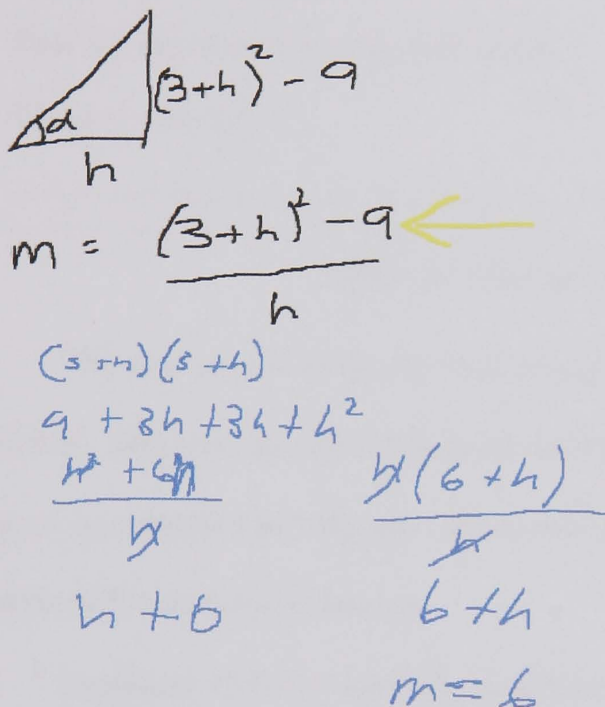 (3+h)² - 9
α
h
m = (3+h)² - 9
h
(3+h)(3+h)
9 + 3h + 3h + h²
h² + 6h
h
h + 6
h(6+h)
h
6+h
m = 6